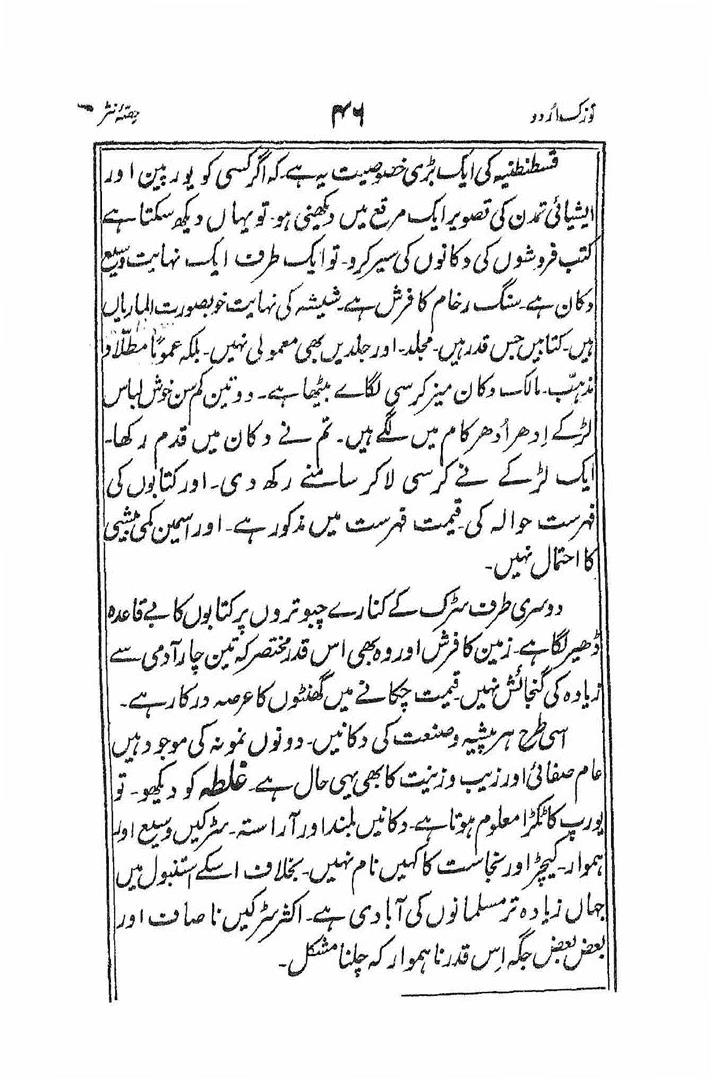 تزک اردو ۴۶ حصۂ نثر
قسطنطنیہ کی ایک بڑی خصوصیت یہ ہے۔ کہ اگر کسی کو یورپین اور
ایشیائی تمدن کی تصویر ایک مرقع میں دیکھنی ہو۔ تو یہاں دیکھ سکتا ہے
کتب فروشوں کی دکانوں کی سیر کرو۔ تو ایک طرف ایک نہایت وسیع
دکان ہے۔ سنگ رخام کا فرش ہے۔ شیشہ کی نہایت خوبصورت الماریاں
ہیں۔ کتابیں جس قدر ہیں۔ مجلد۔ اور جلدیں بھی معمولی نہیں۔ بلکہ عموماً مطلّا و
مذہّب۔ مالک دکان میز کرسی لگاے بیٹھا ہے۔ دو تین کم سن خوش لباس
لڑکے اِدھر اُدھر کام میں لگے ہیں۔ تم نے دکان میں قدم رکھا۔
ایک لڑکے نے کرسی لا کر سامنے رکھ دی۔ اور کتابوں کی
فہرست حوالہ کی۔ قیمت فہرست میں مذکور ہے۔ اور اسمین کمی بیشی
کا احتمال نہیں۔
دوسری طرف سڑک کے کنارے چبوتروں پر کتابوں کا بے قاعدہ
ڈھیر لگا ہے۔ زمین کا فرش اور وہ بھی اس قدر مختصر کہ تین چار آدمی سے
زیادہ کی گنجائش نہیں۔ قیمت چکانے میں گھنٹوں کا عرصہ درکار ہے۔
اسی طرح ہر پیشہ و صنعت کی دکانیں۔ دونوں نمونہ کی موجود ہیں
عام صفائی اور زیب و زینت کا بھی یہی حال ہے۔ غلطہ کو دیکھو۔ تو
یورپ کا ٹکڑا معلوم ہوتا ہے۔ دکانیں بلند اور آراستہ۔ سڑکیں وسیع اور
ہموار۔ کیچڑ اور نجاست کا کہیں نام نہیں۔ بخلاف اسکے استنبول میں
جہاں زیادہ تر مسلمانوں کی آبادی ہے۔ اکثر سڑکیں ناصاف اور
بعض بعض جگہ اِس قدر ناہموار کہ چلنا مشکل۔